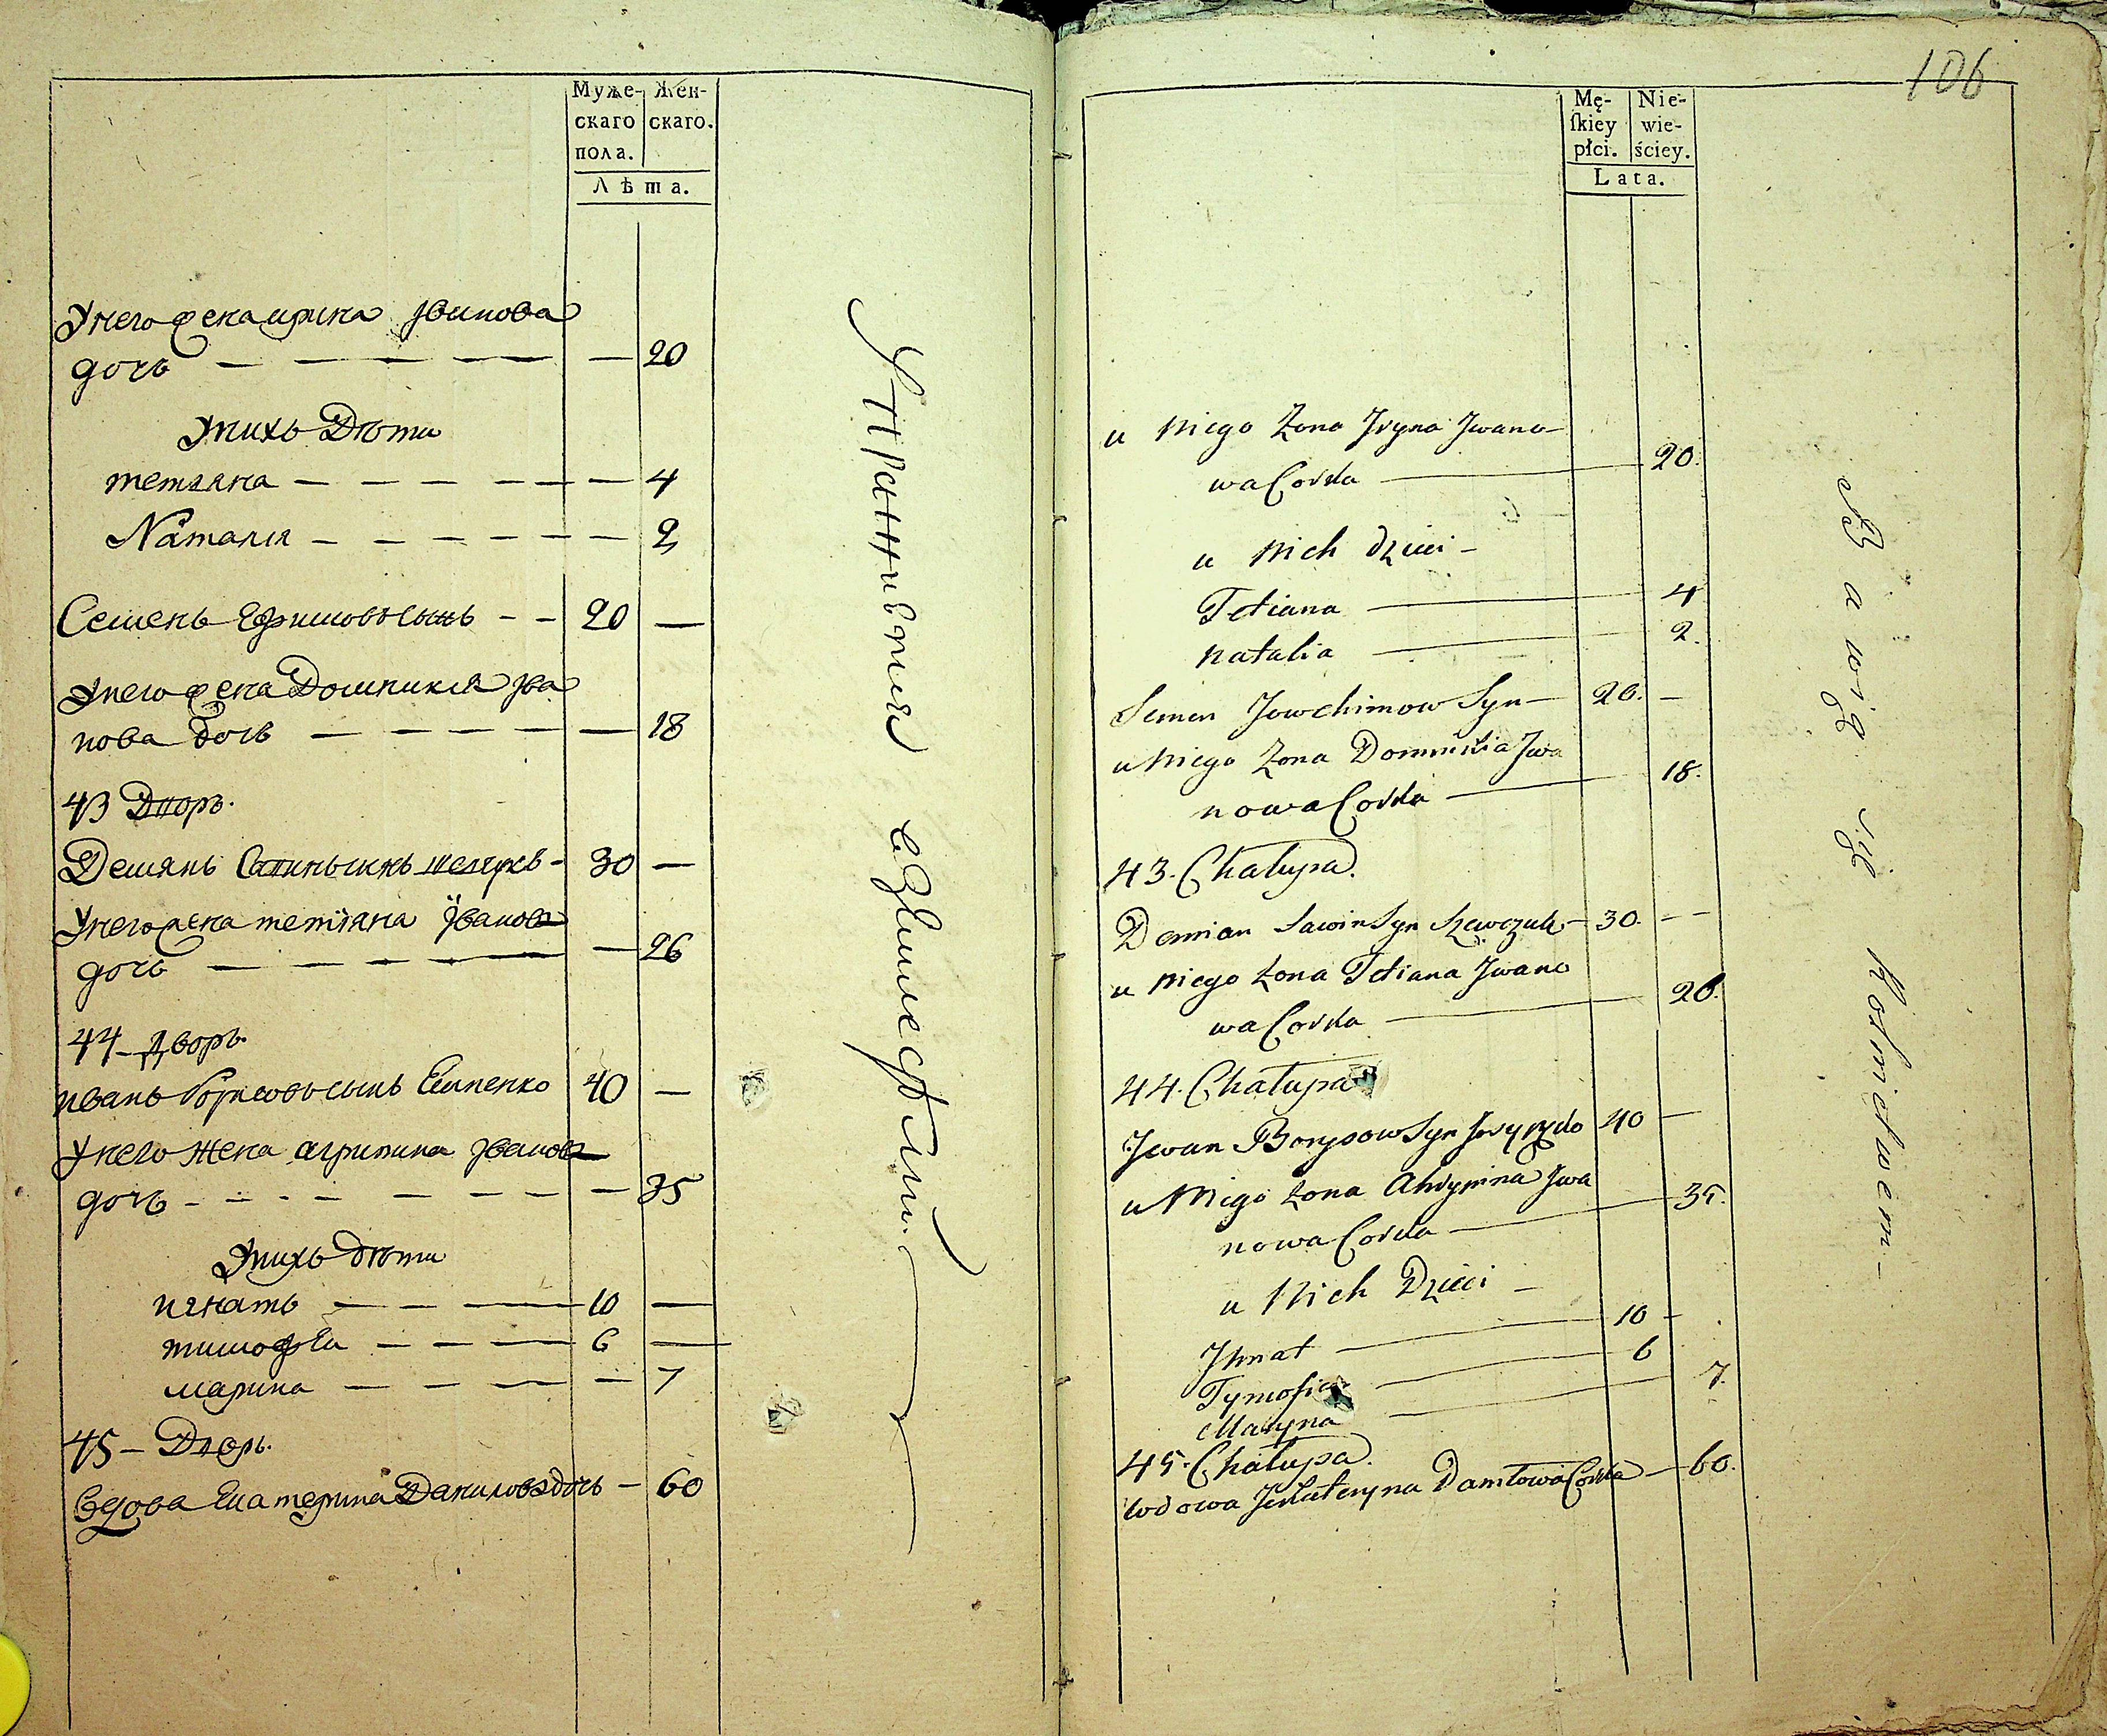 Муже-
скаго
пола.
Жен-
скаго.
Лѣта.
У него жена ирина Иванова
дочь — — — — — — 20
У них Дѣти
тетяна — — — — — — 4
Наталия — — — — — — 2
Семенъ Ефимовъ сынъ — — 20 —
У него жена Домникия Ива
нова дочь — — — — — 18
43 Дворъ.
Демянъ Савинъ сынъ шевчукъ - 30 —
У него жена тетіана Іванова
дочь — — — — — — 26
44 - дворъ.
иванъ борисовъ сынъ 40 —
У него жена агрипина Иванова
дочь - - - - — — — — 35
У нихъ дѣти
игнатъ — — — 10 —
тимофѣи — — — 6 —
марина — — — — 7
45 - Дворъ.
Вдова Екатерина Данилова дочь — 60
Упражнивтся в Земледѣлии.
106
Mę-
ſkiey
płci.
Nie-
wie-
ściey.
Lata.
u niego Żona Iryna Iwano-
wa Corka — 20.
u nich dzieci -
Tetiana — 4
natalia — 2.
Semen Jowchimow Syn — 20. —
u niego Żona Domnikia Iwa
nowa Corka — 18.
43. Chałupa.
Demian Sawin Syn Szewczuk - 30. - -
u niego żona Tetiana Iwano
wa Corka — 26.
44. Chałupa
Iwan Borysow Syn 40 —
u Niego żona Ahrypina Iwa
nowa Corka — 35.
u Nich Dzieci -
Ihnat — 10 -
Tymofiey — 6
Maryna — 7.
45. Chałupa.
Wdowa Jekateryna Daniłowa Corka — 60.
Bawią się Rolnictwem -